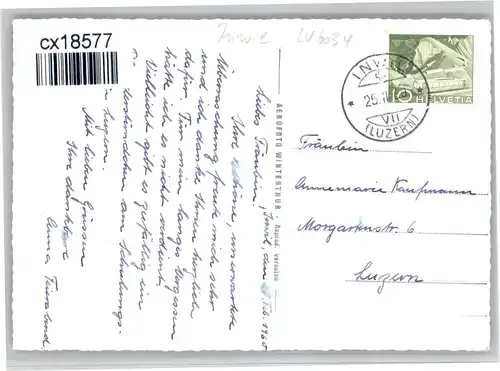 cx18577
Inwil LU 6034
INWIL
25.
VII
(LUZERN)
10 HELVETIA
AEROFOTO WINTERTHUR
Liebes Fräulein, Inwil, den 1960
Ihre schöne, unerwartete
Überraschung freute mich sehr
und ich danke Ihnen herzlich
dafür. Für mein langes Vergessen
hätte ich es nicht verdient.
Vielleicht gibt es gerfällig ein
am Schulungs-
in Luzern.
Mit lieben Grüssen
Ihre dankbare
Anna
Fräulein
Annemarie Kaufmann
Morgartenstr. 6
Luzern